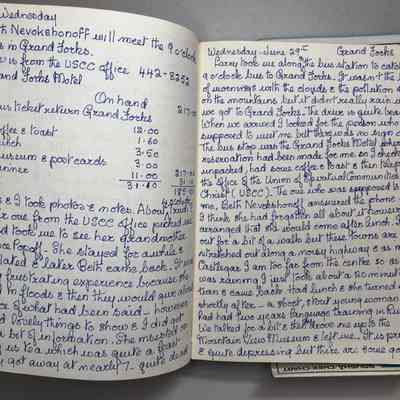 Wednesday
Nevokshonoff will meet the 9 o'clock
is in Grand Forks.
is from the USCC office 442-8252
Grand Forks Motel
On hand
bus ticket return Grand Forks
coffee & toast 12.00
lunch 1.60
3.50
museum & postcards 3.00
dinner 11.00
& I took photos & notes. About
one from the USCC office picked me
and took me to see her grandmother
Popoff. She stayed for awhile &
& later Beth came back. It was
frustrating experience because the
in floods & then they would give about
of what had been said - however
had lovely things to show & I did get
a bit of information. She insisted on
us tea which was quite a feast
got away at nearly 7 - quite
Wednesday - June 29th Grand Forks
Larry took me along the bus station to catch
9 o'clock bus to Grand Forks. It wasn't the b
of mornings with the clouds & the pollution
on the mountains but it didn't really rain u
we got to Grand Forks. The drive is quite bea
When we arrived I looked for the person who
supposed to meet me but there was no sign
The bus stop was the Grand Forks Motel where
reservation had been made for me so I chec
unpacked, had some coffee & toast & then
the office of the Union of Spiritual Communities
Christ (USCC). The one who was supposed to
me, Beth Nevokshonoff answered the phone
I think she had forgotten all about it however
arranged that she would come after lunch. I
out for a bit of a walk but these towns are
stretched out along a main highway & as
Castlegar I am too far from the centre so as
was raining I just took about a 20 minute
turn & came back. Had lunch & she turned
shortly after - a short, stout young woman
had had two years language training in Rus
We talked for a bit & then drove me up to the
Mountain View Museum & left me. It is pre
& quite depressing but there are some goo